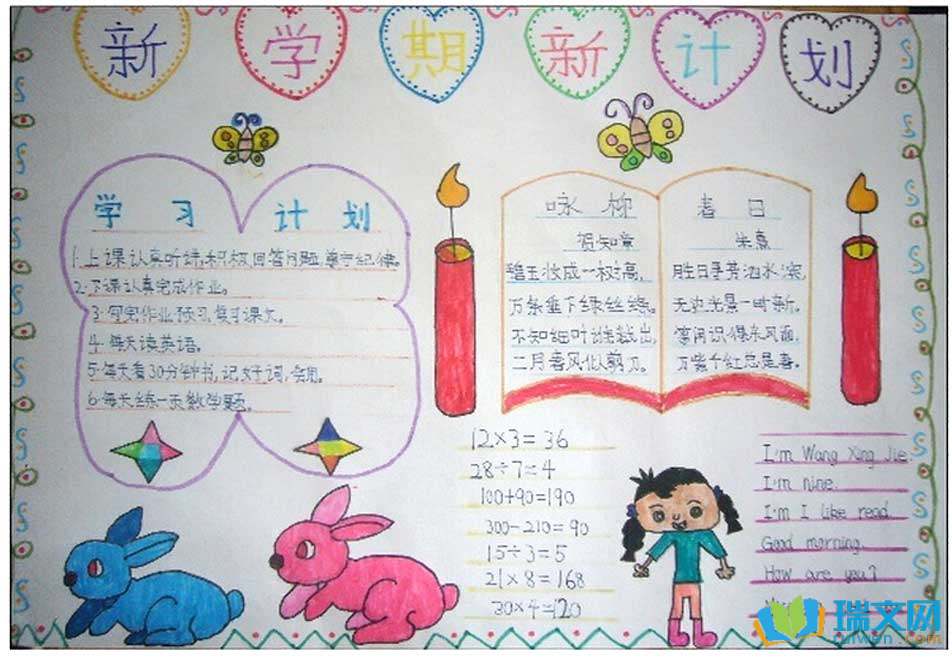 新学期新计划
学习 计划
1.上课认真听讲,积极回答问题,遵守纪律。
2.下课认真完成作业。
3.写完作业预习复习课文。
4.每天读英语。
5.每天看30分钟书,记好词,会用。
6.每天练一页数学题。
咏柳
贺知章
碧玉妆成一树高,
万条垂下绿丝绦。
不知细叶谁裁出,
二月春风似剪刀。
春日
朱熹
胜日寻芳泗水滨,
无边光景一时新。
等闲识得东风面,
万紫千红总是春。
12×3=36
28÷7=4
100+90=190
300-210=90
15÷3=5
21×8=168
30×4=120
I'm Wang Xing Jie
I'm nine.
I'm I like read
Good morning.
How are you?
瑞文网
ruiwen.com